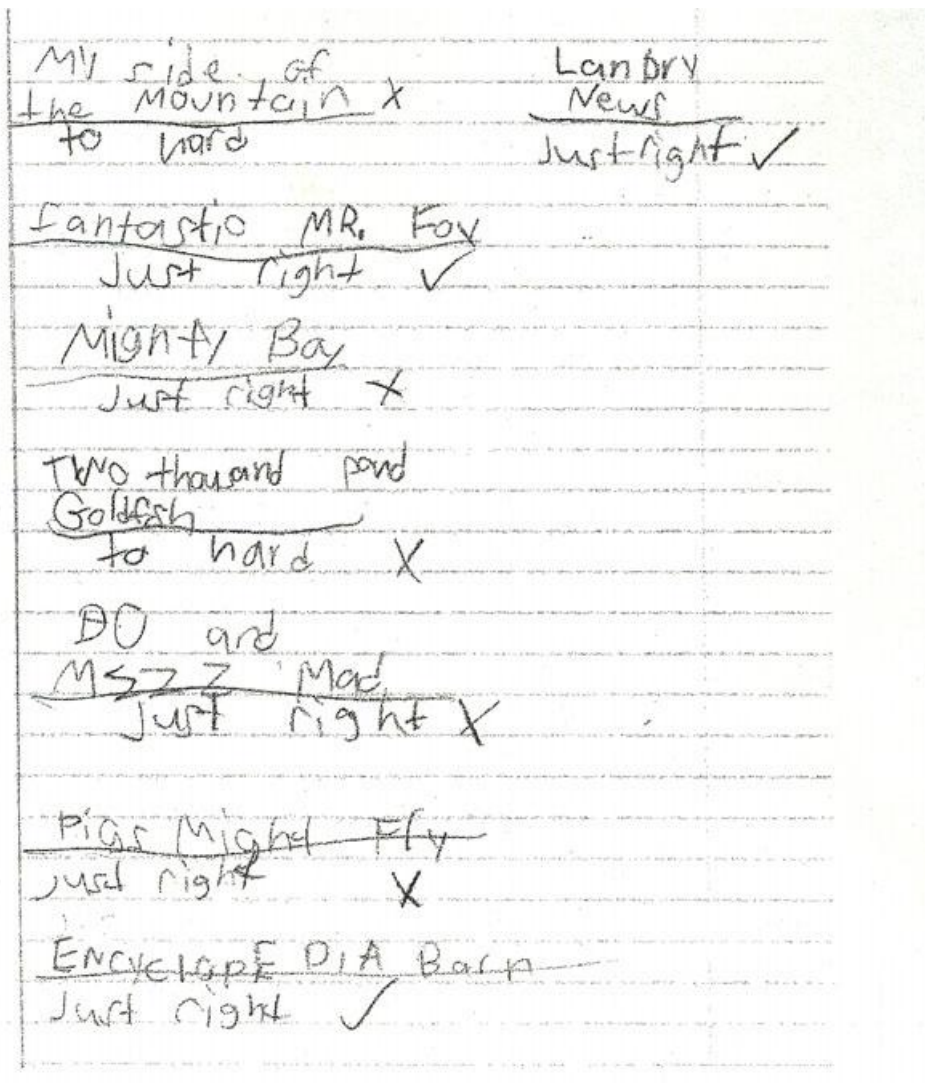 My side of
the Mountain X
to hard
Landry
News
Just right ✓
fantastic MR. Fox
Just right ✓
Mighty Boy
Just right X
Two thousand pond
Goldfish
to hard X
DO and
Mad
just right X
Pigs Might Fly
just right X
ENCYCLOPEDIA
Just right ✓